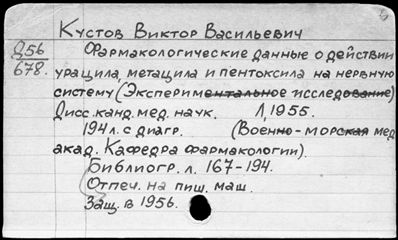 Кустов Виктор Васильевич
Д56
678.
Фармакологические данные о действии
урацила, метацила и пентоксила на нервную
систему (Экспериментальное исследование)
Дисс. канд. мед. наук. Л, 1955.
194 л. с диагр. (Военно-морская мед.
акад. Кафедра фармакологии).
Библиогр. л. 167-194.
Отпеч. на пиш. маш.
Защ. в 1956.